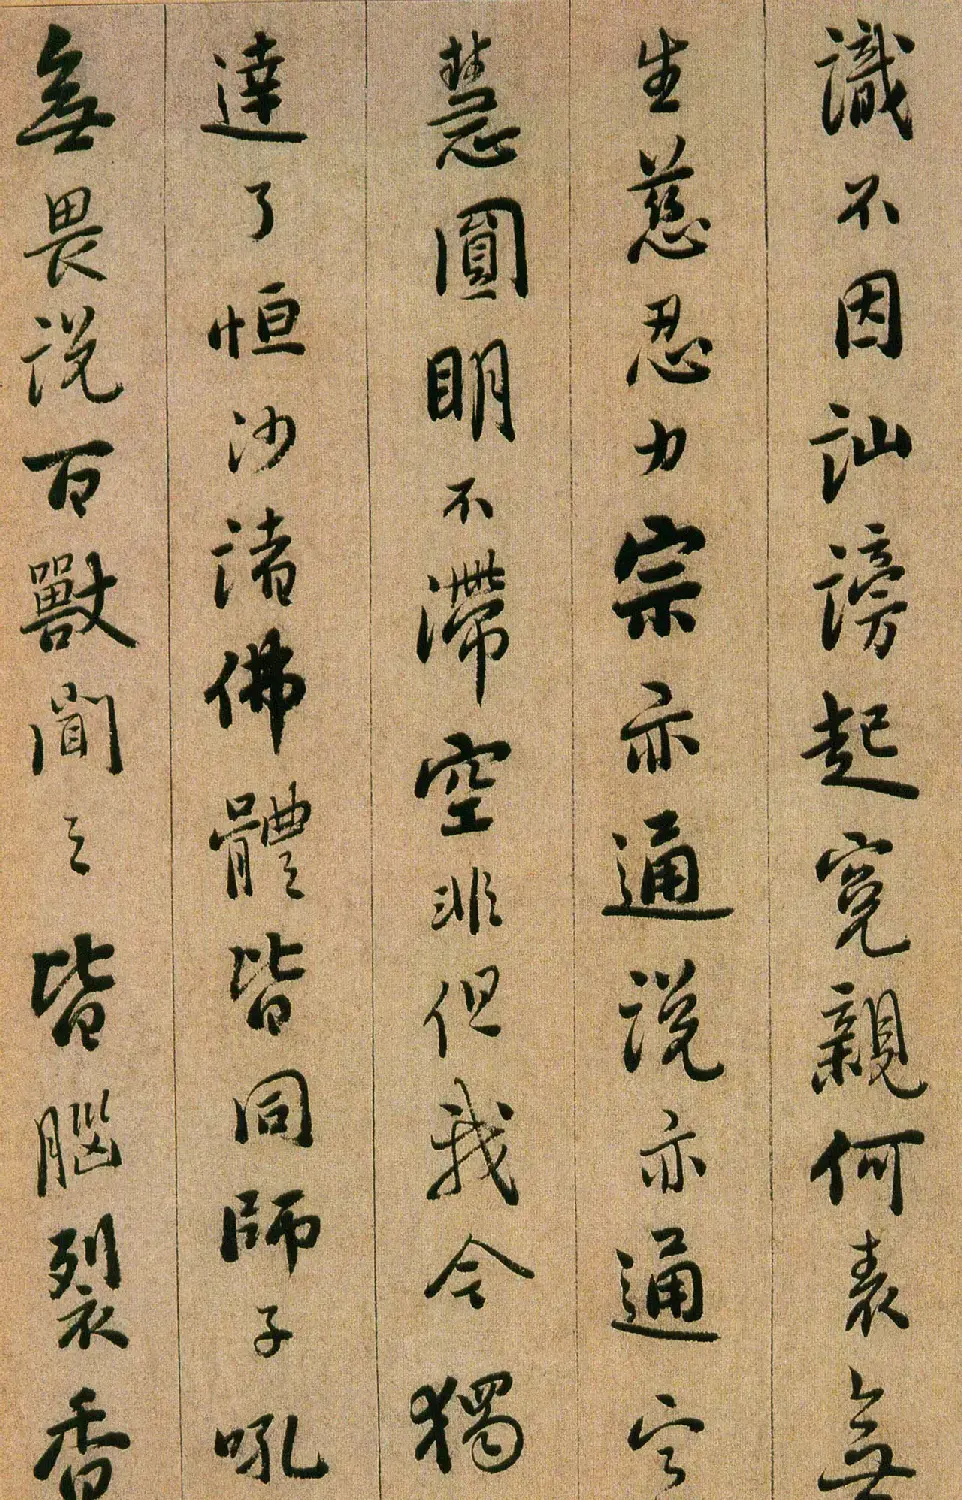 識不因訕謗起寃親何表無
生慈忍力宗亦通說亦通定
慧圓明不滯空非但我今獨
達了恒沙諸佛體皆同師子吼
無畏說百獸聞之皆腦裂香